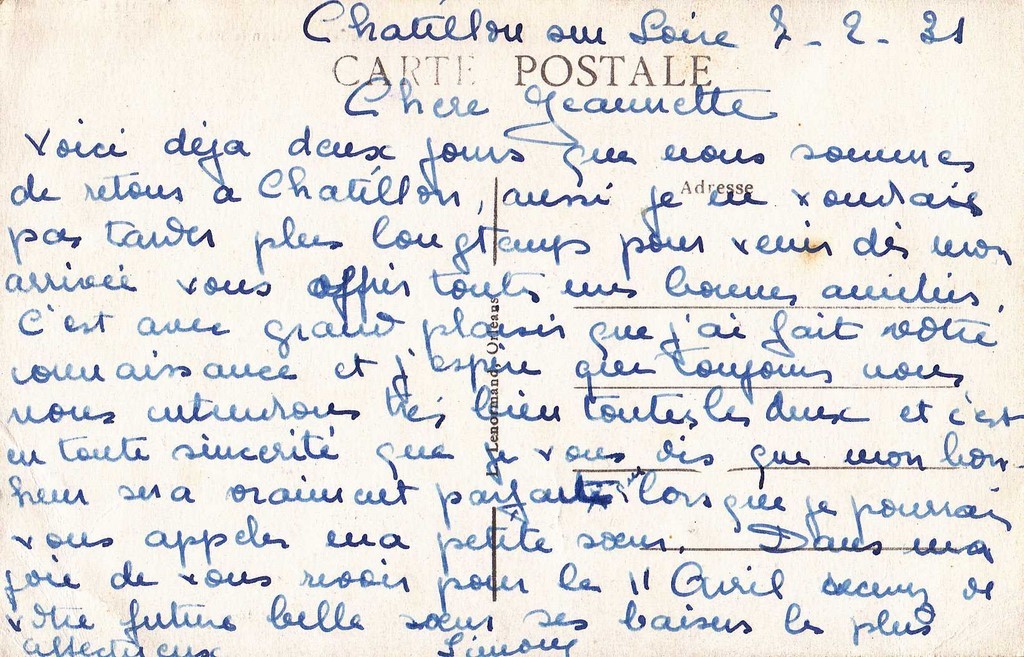 Chatillon sur Loire 2-2-31
CARTE POSTALE
Chere Jeannette
Voici déja deux jours que nous sommes
de retour a Chatillon, aussi je ne voudrais
Adresse
pas tarder plus longtemps pour venir dès mon
arrivée vous offrir toutes mes bonnes amitiés.
C'est avec grand plaisir que j'ai fait votre
connaissance et j'espère que toujours nous
Lenormand, Orléans
nous entendrons très bien toutes les deux et c'est
en toute sincérité que je vous dis que mon bon-
heur sera vraiment parfait lorsque je pourrai
vous appeler ma petite sœur. Dans ma
joie de vous revoir pour le 11 Avril recevez de
votre future belle sœur ses baisers les plus
affectueux Simone